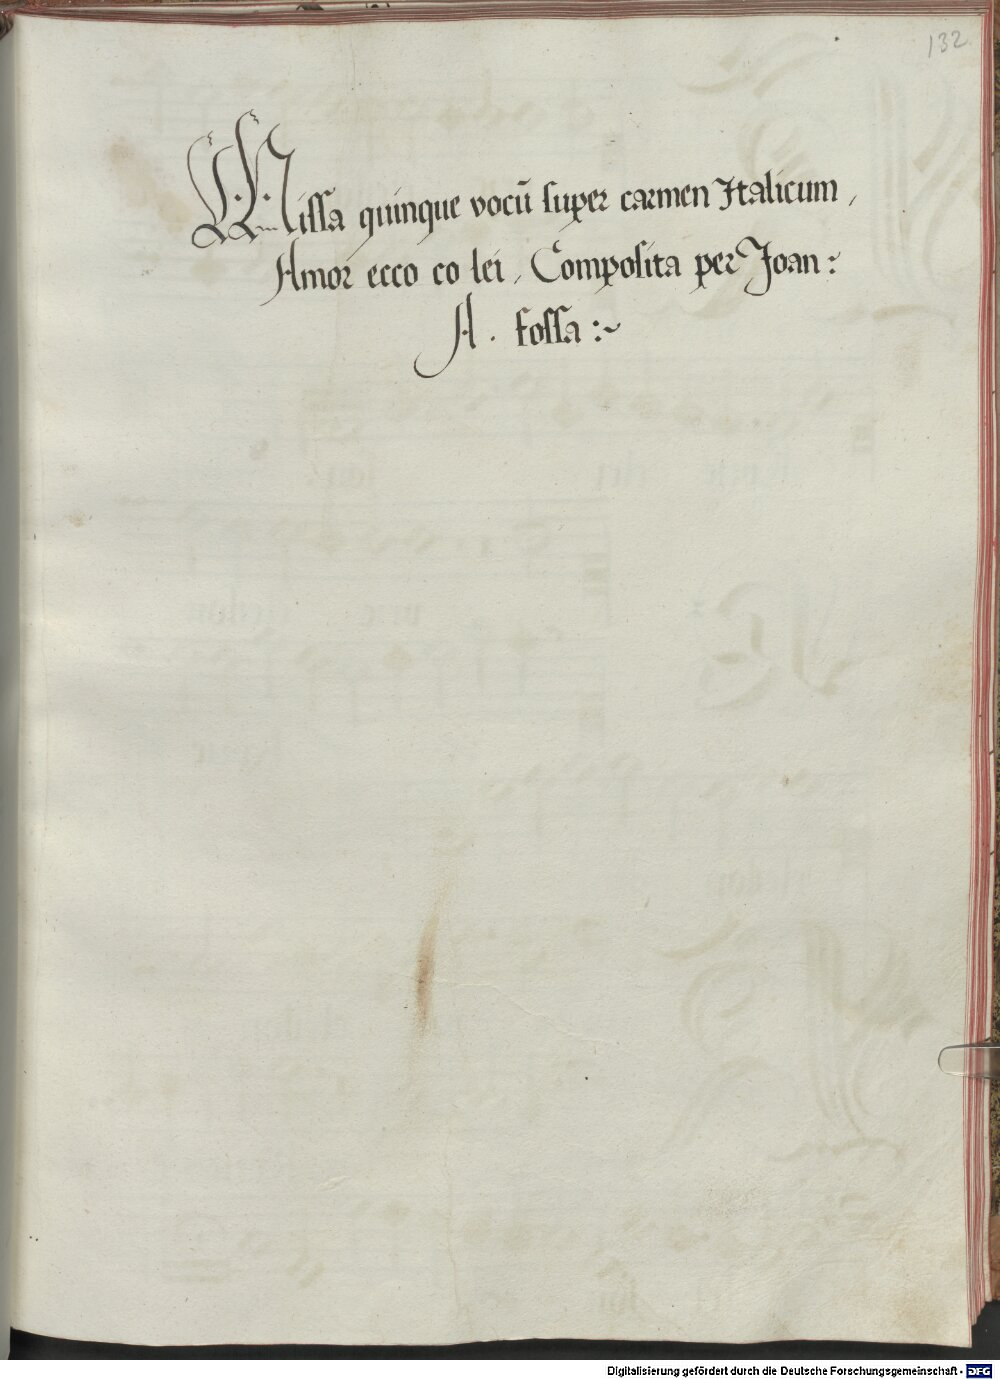 132
Missa quinque vocū super carmen Italicum,
Amor ecco co lei, Composita per Joan:
A. Fossa:~
Digitalisierung gefördert durch die Deutsche Forschungsgemeinschaft - DFG